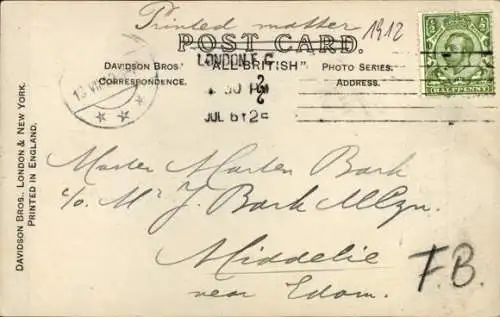 Printed matter
1912
POST CARD.
DAVIDSON BROS.' "ALL-BRITISH" PHOTO SERIES.
CORRESPONDENCE. ADDRESS.
LONDON E.C
30 P
JUL 6 12
HALFPENNY
DAVIDSON BROS., LONDON & NEW YORK.
PRINTED IN ENGLAND.
Master Marten Bark
c/o Mr J. Bark Mlzn.
Middelie
near Edam.
F.B.